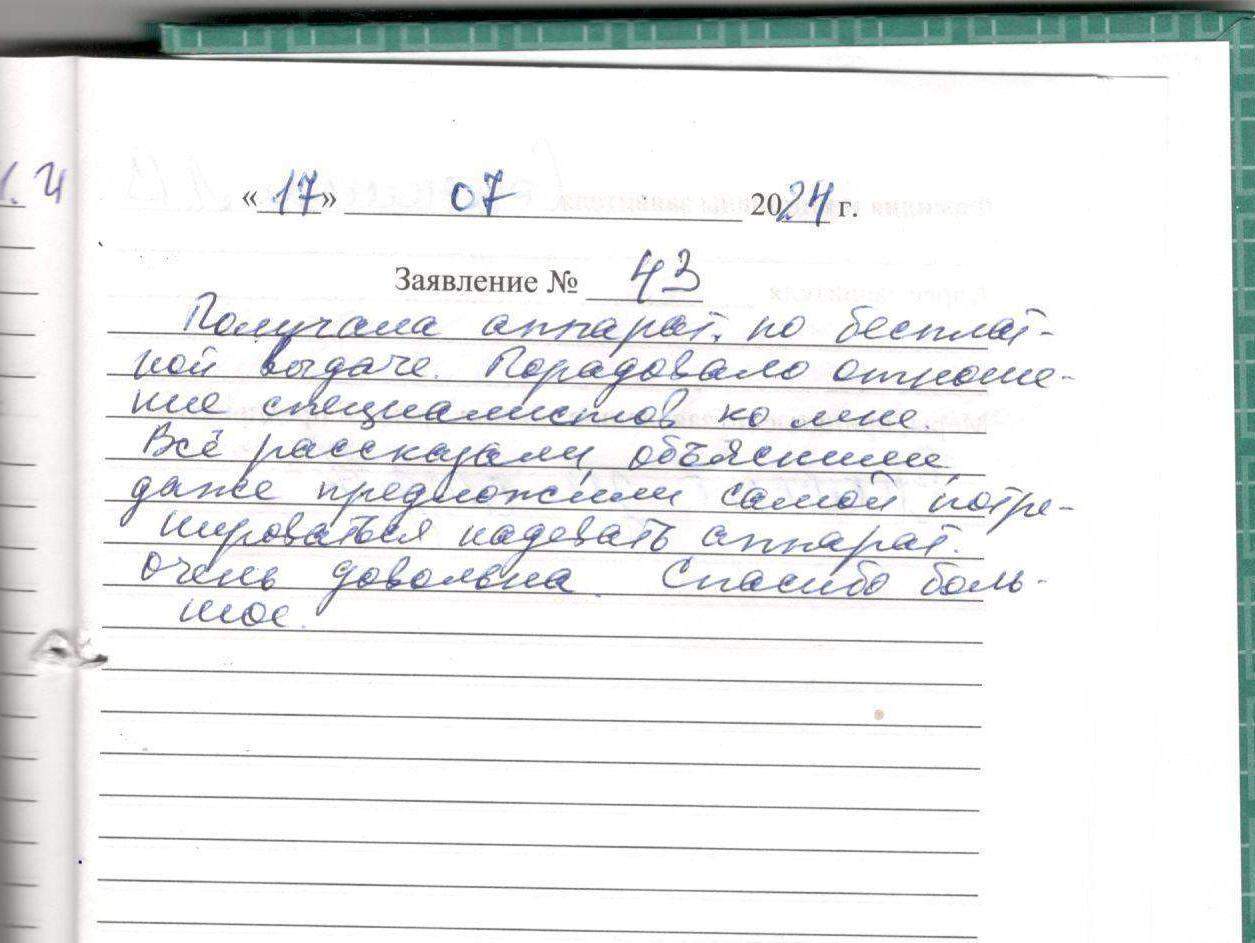 «17» 07 2024 г.
Заявление № 43
Получала аппарат. по бесплат-
ной выдаче. Порадовало отноше-
ние специалистов ко мне.
Всё рассказали, объяснили,
даже предложили самой потре-
нироваться надевать аппарат.
очень довольна. Спасибо боль-
шое.